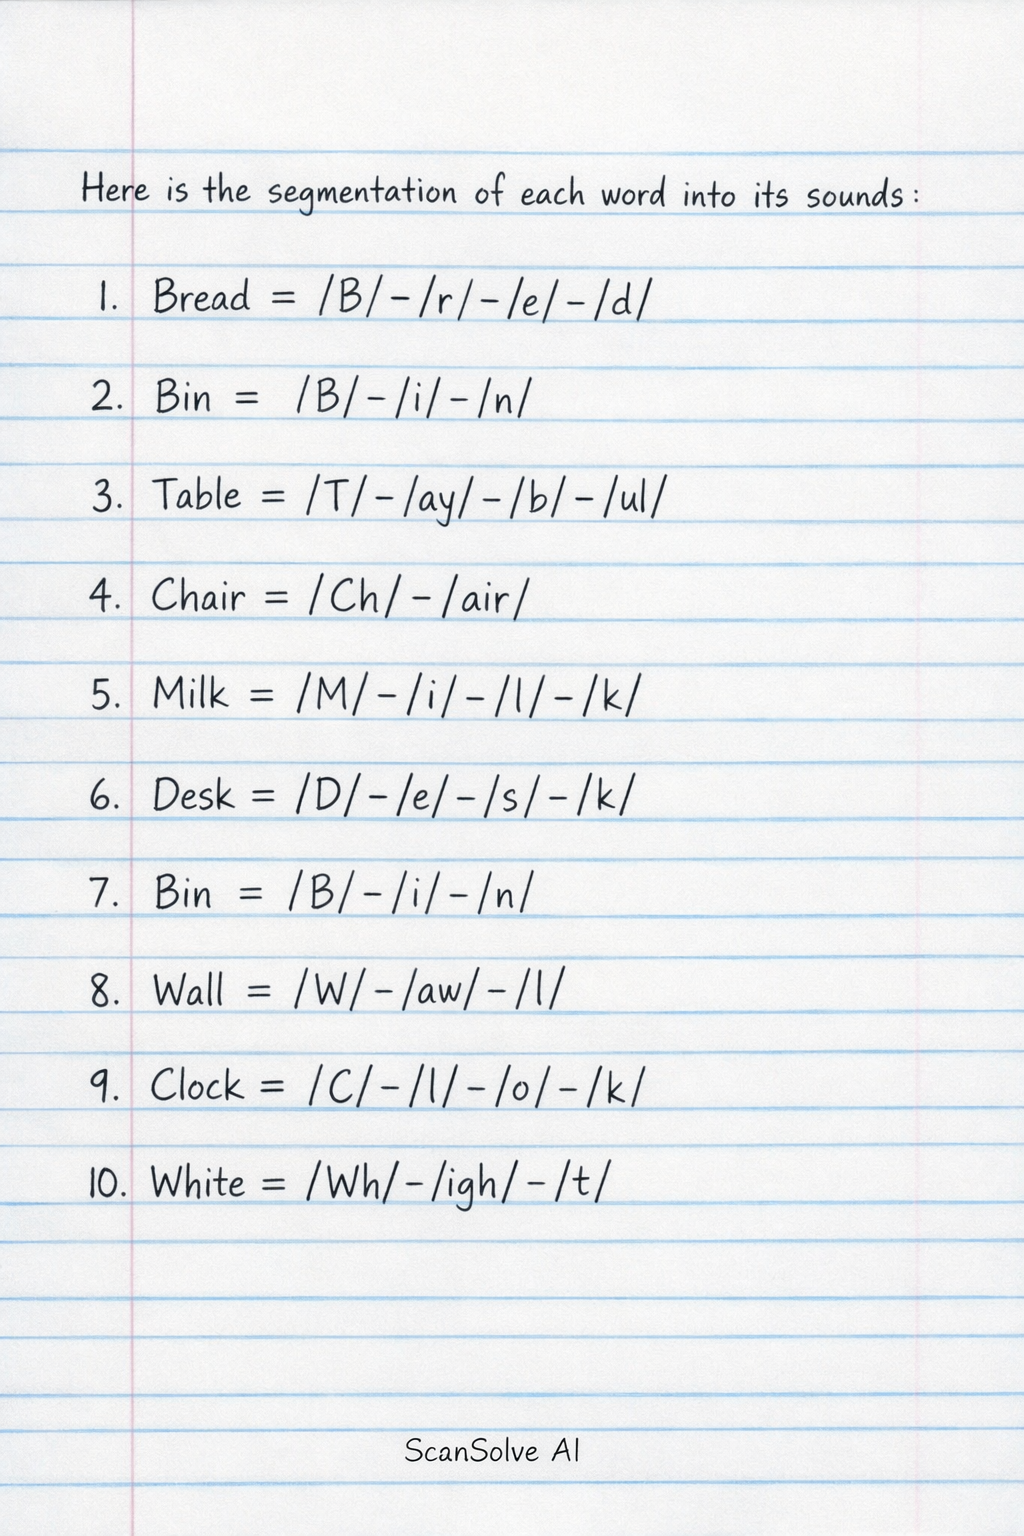 Here is the segmentation of each word into its sounds:
1. Bread = /B/-/r/-/e/-/d/
2. Bin = /B/-/i/-/n/
3. Table = /T/-/ay/-/b/-/ul/
4. Chair = /Ch/-/air/
5. Milk = /M/-/i/-/l/-/k/
6. Desk = /D/-/e/-/s/-/k/
7. Bin = /B/-/i/-/n/
8. Wall = /W/-/aw/-/l/
9. Clock = /C/-/l/-/o/-/k/
10. White = /Wh/-/igh/-/t/
ScanSolve AI